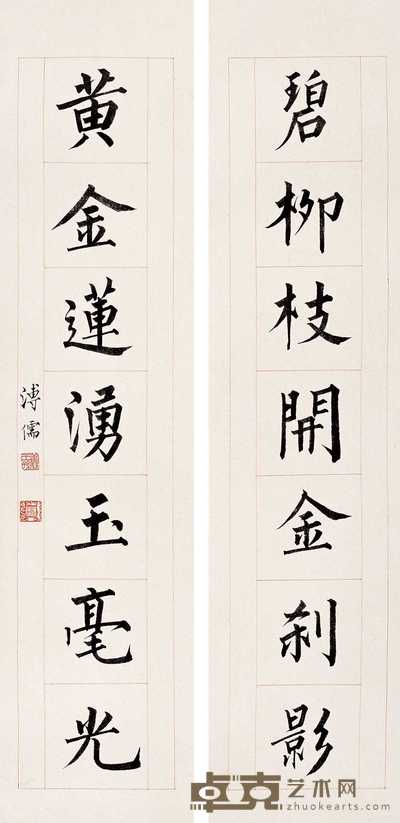 碧柳枝開金刹影
黄金蓮湧玉毫光
溥儒
卓克艺术网
zhuokearts.com